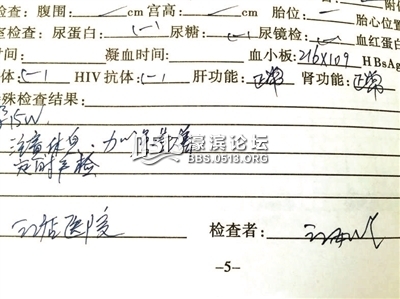 检查：腹围： cm 宫高： cm 胎位： 附
室检查：尿蛋白：(-) 尿糖：(-) 尿镜检：(-) 血红蛋白
时间： 凝血时间： 血小板：216×109 HBsAg
体：(-) HIV抗体：(-) 肝功能：正常 肾功能：正常
殊检查结果：
15W
注意休息
定时产检
濠滨论坛
BBS.0513.ORG
医院
检查者：
-5-